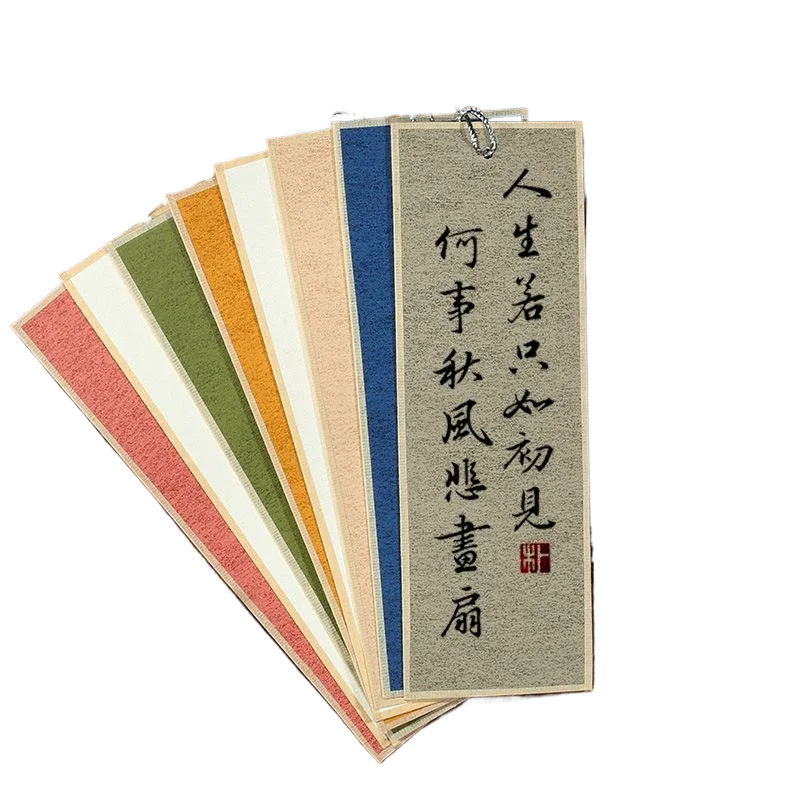 人生若只如初見
何事秋風悲畫扇